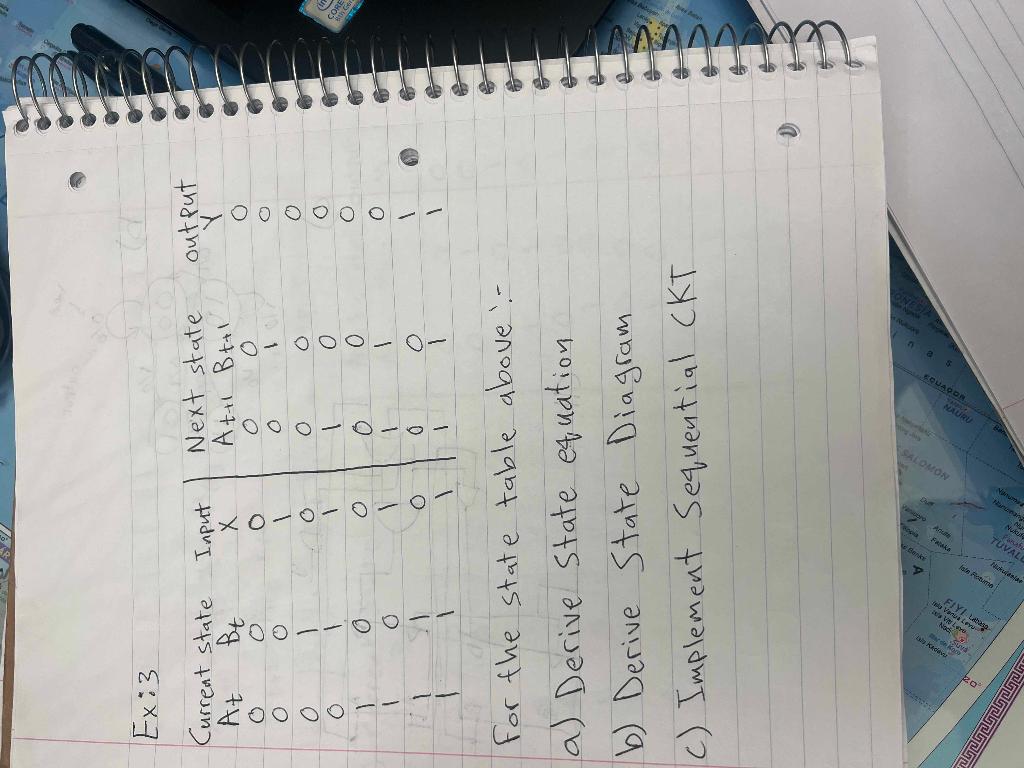 Ex:3
Current state Input Next state output
At Bt X At+1 Bt+1 Y
0 0 0 0 0 0
0 0 1 0 1 0
0 1 0 0 0 0
0 1 1 1 0 0
1 0 0 0 0 0
1 0 1 1 1 0
1 1 0 0 0 1
1 1 1 1 1 1
For the state table above:-
a) Derive State equation
b) Derive State Diagram
c) Implement Sequential CKT
ECUADOR
NAURU
SALOMON
TUVALU
FIYI
20°